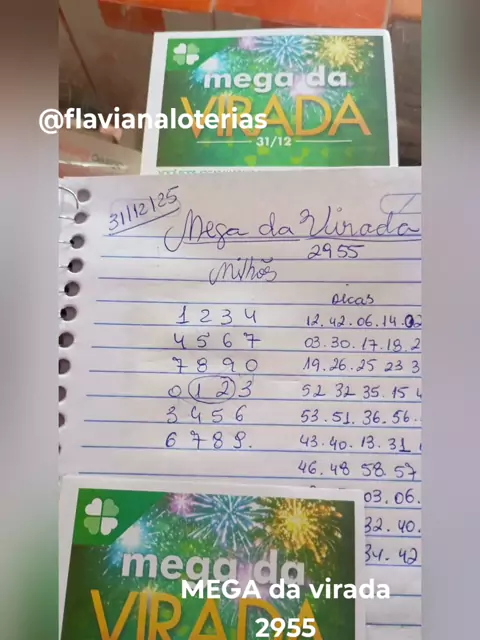 mega da
VIRADA
31/12
@flavianaloterias
31/12/25
Mega da Virada
2955
Milhões
Dicas
1 2 3 4
12.42.06.14.02
4 5 6 7
03.30.17.18.2
7 8 9 0
19.26.25 23 3
0 1 2 3
52 32 35.15 4
3 4 5 6
53.51.36.56.
6 7 8 9.
43.40.13.31
46.48 58.57
03.06.
32.40.
34.42
mega da
VIRADA
MEGA da virada
2955